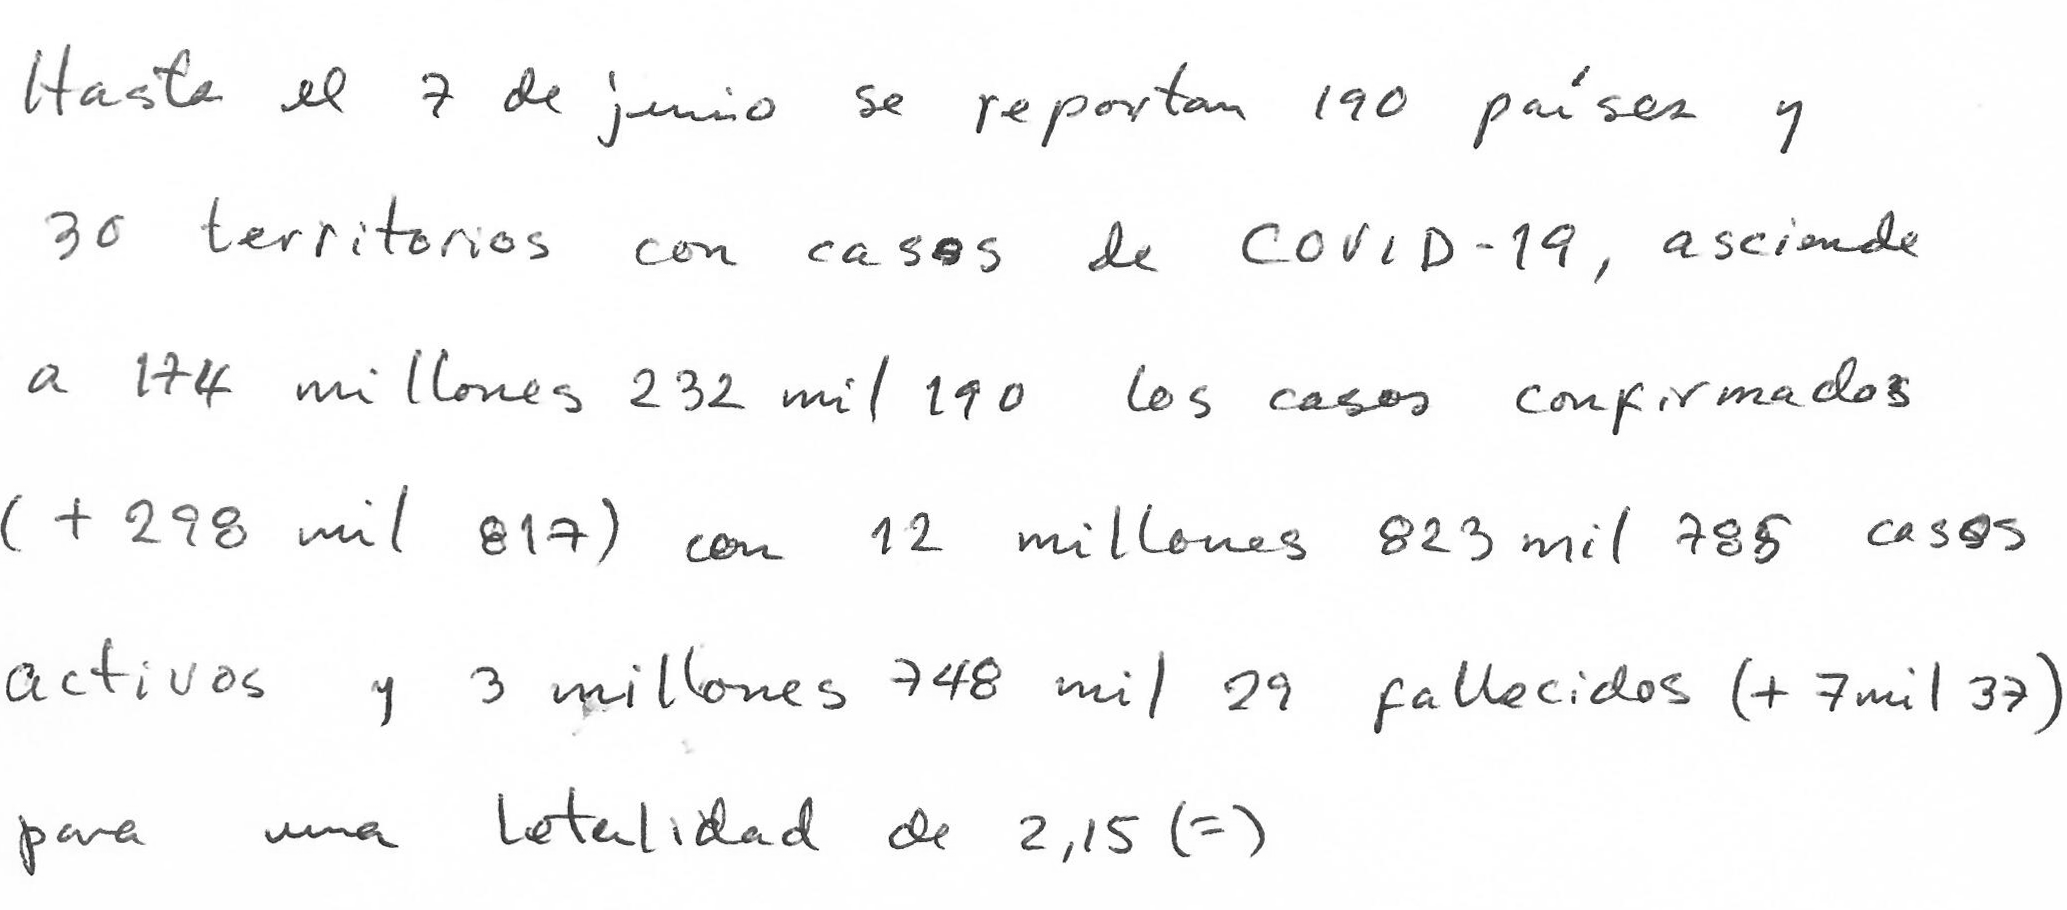 Hasta el 7 de junio se reportan 190 países y
30 territorios con casos de COVID-19, asciende
a 174 millones 232 mil 190 los casos confirmados
(+ 298 mil 817) con 12 millones 823 mil 785 casos
activos y 3 millones 748 mil 29 fallecidos (+ 7 mil 37)
para una letalidad de 2,15 (=)